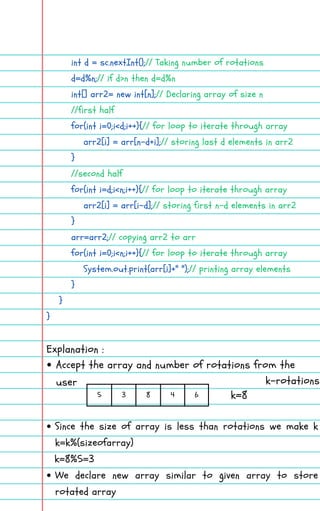 int d = sc.nextInt();// Taking number of rotations
d=d%n;// if d>n then d=d%n
int[] arr2= new int[n];// Declaring array of size n
//first half
for(int i=0;i<d;i++){// for loop to iterate through array
arr2[i] = arr[n-d+i];// storing last d elements in arr2
}
//second half
for(int i=d;i<n;i++){// for loop to iterate through array
arr2[i] = arr[i-d];// storing first n-d elements in arr2
}
arr=arr2;// copying arr2 to arr
for(int i=0;i<n;i++){// for loop to iterate through array
System.out.print(arr[i]+" ");// printing array elements
}
}
}
Explanation :
• Accept the array and number of rotations from the
user k-rotations
5 3 8 4 6 k=8
• Since the size of array is less than rotations we make k
k=k%(sizeofarray)
k=8%5=3
• We declare new array similar to given array to store
rotated array